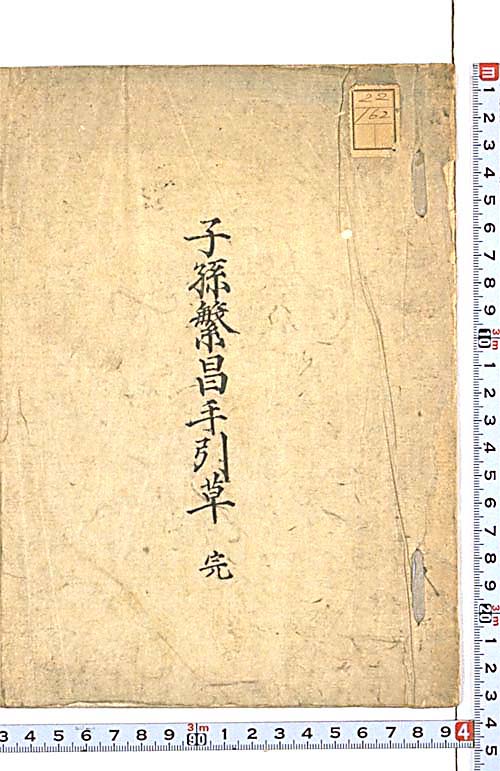 子孫繁昌手引草 完
22
162
m 1 2 3 4 5 6 7 8 9 10 3m 1 2 3 4 5 6 7 8 9 20 3m 1 2 3 4 5
3 4 5 6 7 8 9 3m 90 1 2 3 4 5 6 7 8 9 4